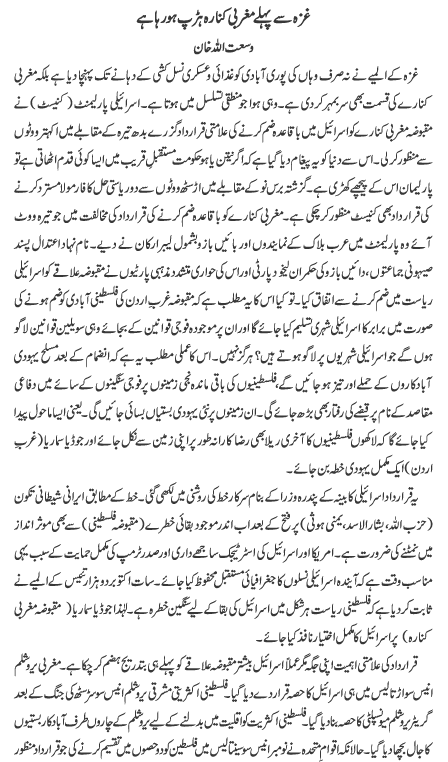 غزہ سے پہلے مغربی کنارہ ہڑپ ہو رہا ہے
وسعت اللہ خان
غزہ کے المیے نے نہ صرف وہاں کی پوری آبادی کو غذائی و عسکری نسل کشی کے دہانے تک پہنچا دیا ہے بلکہ مغربی
کنارے کی قسمت بھی سربمہر کردی ہے۔ وہی ہوا جو منطقی تسلسل میں ہوتا ہے۔ اسرائیلی پارلیمنٹ (کنیسٹ) نے
مقبوضہ مغربی کنارے کو اسرائیل میں باقاعدہ ضم کرنے کی علامتی قرارداد گزرے بدھ تیرہ کے مقابلے میں اکہتر ووٹوں
سے منظور کر لی۔ اس سے دنیا کو یہ پیغام دیا گیا ہے کہ اگر نیتن یاہو حکومت مستقبلِ قریب میں ایسا کوئی قدم اٹھاتی ہے تو
پارلیمان اس کے پیچھے کھڑی ہے۔ گزشتہ برس نو کے مقابلے میں اڑسٹھ ووٹوں سے دو ریاستی حل کا فارمولا مسترد کرنے
کی قرارداد بھی کنیسٹ منظور کر چکی ہے۔ مغربی کنارے کو باقاعدہ ضم کرنے کی قرارداد کی مخالفت میں جو تیرہ ووٹ
آئے وہ پارلیمنٹ میں عرب بلاک کے نمایندوں اور بائیں بازو بشمول لیبر ارکان نے دیے۔ نام نہاد اعتدال پسند
صیہونی جماعتوں، دائیں بازو کی حکمران لیخود پارٹی اور اس کی حواری متشدد مذہبی پارٹیوں نے مقبوضہ علاقے کو اسرائیلی
ریاست میں ضم کرنے سے اتفاق کیا۔ تو کیا اس کا یہ مطلب ہے کہ مقبوضہ غرب اردن کی فلسطینی آبادی کو ضم ہونے کی
صورت میں برابر کا اسرائیلی شہری تسلیم کیا جائے گا اور ان پر موجودہ فوجی قوانین کے بجائے وہی سویلین قوانین لاگو
ہوں گے جو اسرائیلی شہریوں پر لاگو ہوتے ہیں؟ ہرگز نہیں۔ اس کا عملی مطلب یہ ہے کہ انضمام کے بعد مسلح یہودی آباد
کاروں کے حملے اور تیز ہو جائیں گے، فلسطینیوں کی باقی ماندہ نجی زمینوں پر فوجی سنگینوں کے سائے میں دفاعی
مقاصد کے نام پر قبضے کی رفتار بھی بڑھ جائے گی۔ ان زمینوں پر نئی یہودی بستیاں بسائی جائیں گی۔ یعنی ایسا ماحول پیدا
کیا جائے گا کہ لاکھوں فلسطینیوں کا آخری ریلا بھی رضاکارانہ طور پر اپنی زمین سے نکل جائے اور جوڈیا سماریا (غربِ
اردن) ایک مکمل یہودی خطہ بن جائے۔
یہ قرارداد اسرائیلی کابینہ کے پندرہ وزرا کے بنام سرکار خط کی روشنی میں لکھی گئی۔ خط کے مطابق ایرانی شیطانی تکون
(حزب اللہ، بشار الاسد، یمنی ہوثی) پر فتح کے بعد اب اندر موجود بقائی خطرے (مقبوضہ فلسطینی) سے بھی موثر انداز
میں نمٹنے کی ضرورت ہے۔ امریکا اور اسرائیل کی اسٹرٹیجک ساجھے داری اور صدر ٹرمپ کی مکمل حمایت کے سبب یہی
مناسب وقت ہے کہ آیندہ اسرائیلی نسلوں کا جغرافیائی مستقبل محفوظ کیا جائے۔ سات اکتوبر دو ہزار تئیس کے المیے نے
ثابت کر دیا ہے کہ فلسطینی ریاست ہر شکل میں اسرائیل کی بقا کے لیے سنگین خطرہ ہے۔ لہٰذا جوڈیا سماریا (مقبوضہ مغربی
کنارہ) پر اسرائیل کا مکمل اختیار نافذ کیا جائے۔
قرارداد کی علامتی اہمیت اپنی جگہ مگر عملاً اسرائیل بیشتر مقبوضہ علاقے کو پہلے ہی بتدریج ہضم کر چکا ہے۔ مغربی یروشلم
انیس سو اڑتالیس میں ہی اسرائیل کا حصہ قرار دے دیا گیا۔ فلسطینی اکثریتی مشرقی یروشلم انیس سو سڑسٹھ کی جنگ کے بعد
گریٹر یروشلم میونسپلٹی کا حصہ بنا دیا گیا۔ فلسطینی اکثریت کو اقلیت میں بدلنے کے لیے یروشلم کے چاروں طرف آبادکار بستیوں
کا جال بچھا دیا گیا۔ حالانکہ اقوامِ متحدہ نے نومبر انیس سو سینتالیس میں فلسطین کو دو حصوں میں تقسیم کرنے کی جو قرارداد منظور